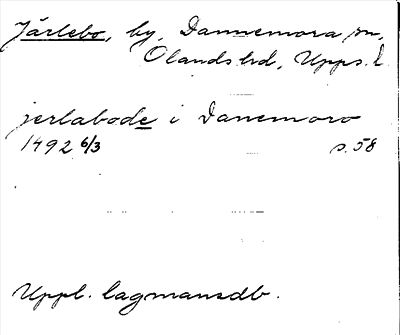 Järlebo, by, Dannemora sn,
Olands hd, Upps. l.
jerlabode i Danemoro
1492 6/3 s. 58
Uppl. lagmansdb.